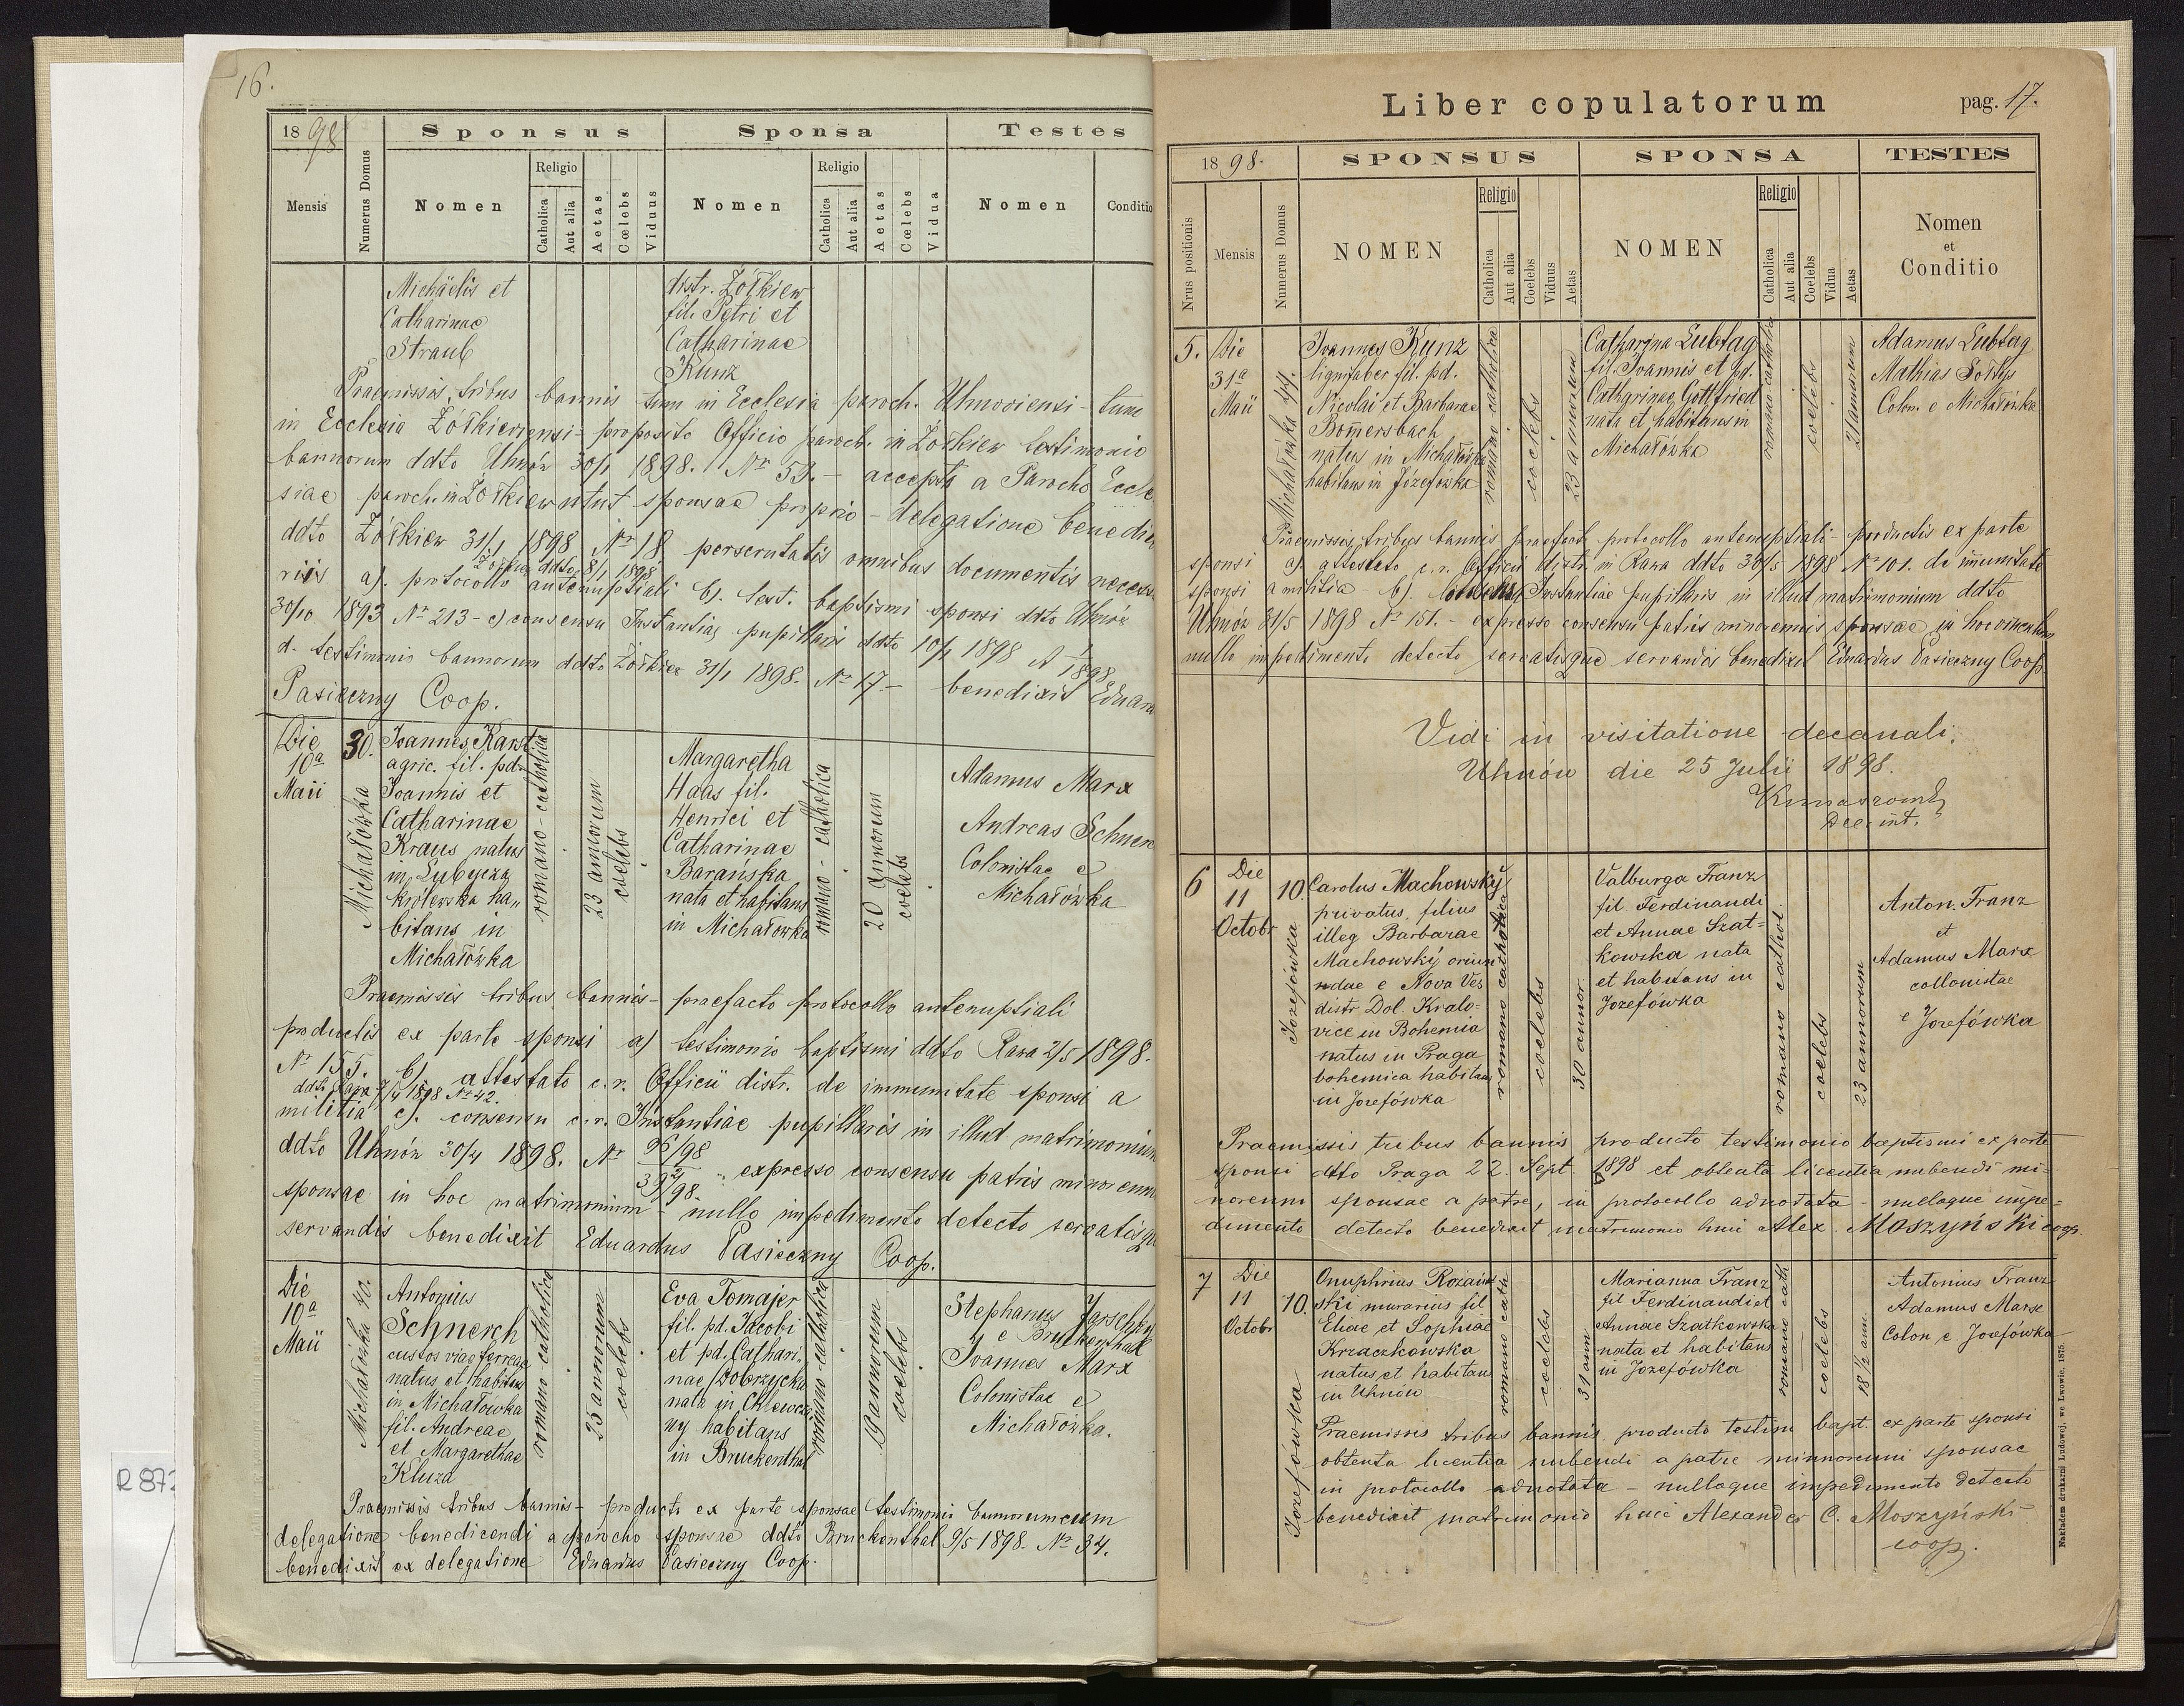 16.
1898
Sponsus
Sponsa
Testes
Mensis
Numerus Domus
Nomen
Religio
Catholica
Aut alia
Aetas
Cœlebs
Viduus
Nomen
Religio
Catholica
Aut alia
Aetas
Cœlebs
Vidua
Nomen
Conditio
Michäelis et
Catharinae
Straub
distr. Żółkiew
fil. Petri et
Catharinae
Kunz
Praemissis tribus bannis tum in Ecclesia paroch. Uhnoviensi - tum
in Ecclesia Żółkieviensi - proposito Officio paroch. in Żółkiew testimonio
bannorum ddto Uhnów 30/1 1898. Nr 53. - accepta a Parocho Eccle
siae paroch. in Żółkiew utut sponsae proprio - delegatione benedic
ddto Żółkiew 31/1 1898 Nr 18 perscrutatis omnibus documentis necess
ddto 8/1 1898
riis a). protocollo antenuptiali b). test. baptismi sponsi ddto Uhnów
30/10 1893 Nr 213 - c) consensu Instantiae pupillaris ddto 10/1 1898
d. testimonio bannorum ddto Żółkiew 31/1 1898. Nr 17 - benedixit Eduar
Pasieczny Coop.
Die
10a
Maii
30.
Michałówka
Joannes Karst
agric. fil. pd.
Joannis et
Catharinae
Kraus natus
in Lubycza
królewska ha„
bitans in
Michałówka
romano-catholica
23 annorum
coelebs
Margaretha
Haas fil.
Henrici et
Catharinae
Barańska
nata et habitans
in Michałowka
romano-catholica
20 annorum
coelebs
Adamus Marx
Andreas Schner
Colonistae e
Michałówka
Praemissis tribus bannis - praefacto protocollo antenuptiali
productis ex parte sponsi a) testimonio baptismi ddto Rawa 2/5 1898.
Nr 155. b) attestato c.r. Officii distr. de immunitate sponsi a
ddto Rawa 7/4 1898 Nr 42.
militia c). consensu c.r. Instantiae pupillaris in illud matrimonium
ddto Uhnów 30/4 1898. Nr 96/98
392/98. expresso consensu patris minorenn
sponsae in hoc matrimonium - nullo impedimento detecto servatisqu
servandis benedixit Eduardus Pasieczny Coop.
Die
10a
Maii
Michałówka 40.
Antonius
Schnerch
custos viae ferreae
natus et habitans
in Michałówka
fil. Andreae
et Margarethae
Kluza
romano-catholica
25 annorum
coelebs
Eva Tomajer
fil. pd. Jacobi
et pd. Cathari„
nae Dobrzycka
nata in Chlewcza
ny habitans
in Bruckenthal
romano-catholica
19 annorum
coelebs
Stephanus
e Bruckenthal
Joannes Marx
Colonistae e
Michałówka.
Praemissis tribus bannis - producto ex parte sponsae testimonio bannorum cum
delegatione benedicendi a parocho sponsae ddto Bruckenthal 9/5 1898. Nr 34.
benedixit ex delegatione Eduardus Pasieczny Coop.
R 872
Liber copulatorum
pag. 17.
1898.
SPONSUS
SPONSA
TESTES
Nrus positionis
Mensis
Numerus Domus
NOMEN
Religio
Catholica
Aut alia
Coelebs
Viduus
Aetas
NOMEN
Religio
Catholica
Aut alia
Coelebs
Vidua
Aetas
Nomen
et
Conditio
5.
Die
31a
Maii
Michałówka 44.
Joannes Kunz
lignifaber fil. pd.
Nicolai et Barbarae
Bom̄ersbach
natus in Michałówka
habitans in Józefówka
romano catholica
coelebs
23 annorum
Catharina Lubtag
fil. Joannis et pd.
Catharinae Gottfried
nata et habitans in
Michałówka
romano-catholica
coelebs
21 annorum
Adamus Lubtag
Mathias Sołtys
Colon. e Michałówka
Praemissis tribus bannis praefacto protocollo antenuptiali - productis ex parte
sponsi a) attestato c.r. Officii distr. in Rawa ddto 30/5 1898 Nr 101. de im̄unitate
sponsi a militia - b). Instantiae pupillaris in illud matrimonium ddto
Uhnów 31/5 1898 Nr 151. - expresso consensu patris minorennis sponsae in hoc
nullo impedimento detecto servatisque servandis benedixit Eduardus Pasieczny Coop.
Vidi in visitatione decanali.
Uhnów die 25 Julii 1898.
Dec. int.
6
Die
11
Octobr
10.
Jozefówka
Carolus Machowský
privatus, filius
illeg Barbarae
Machowský oriun
ndae e Nova Ves
distr Dol. Kralo-
vice in Bohemia
natus in Praga
bohemica habitans
in Jozefówka
romano catholica
coelebs
30 annor.
Valburga Franz
fil Ferdinandi
et Annae Szat-
kowska nata
et habitans in
Jozefówka
romano cathol.
coelebs
23 annorum
Anton. Franz
et
Adamus Marx
collonistae
e Jozefówka
Praemissis tribus bannis producto testimonio baptismi ex parte
sponsi ddto Praga 22. Sept. 1898 et obtenta licentia nubendi mi-
norenni sponsae a patre, in protocollo adnotata - nulloque impe-
dimento detecto benedixit matrimonio huic Alex. Moszyński coop.
7
Die
11
Octobr
10.
Jozefówka
Onuphrius Rozań
ski murarius fil
Eliae et Sophiae
Krzaczkowska
natus et habitans
in Uhnów
romano cath
coelebs
31 ann.
Marianna Franz
fil Ferdinandi et
Annae Szatkowska
nata et habitans
in Jozefówka
romano cath
coelebs
18 1/2 ann.
Antonius Franz
Adamus Marx
Colon e. Jozefówka
Praemissis tribus bannis producto testim bapt. ex parte sponsi
obtenta licentia nubendi a patre minnorenni sponsae
in protocollo adnotata - nulloque impedimento detecto
benedixit matrimonio huic Alexander C. Moszyński
coop.
Nakładem drukarni Ludowej, we Lwowie. 1875.